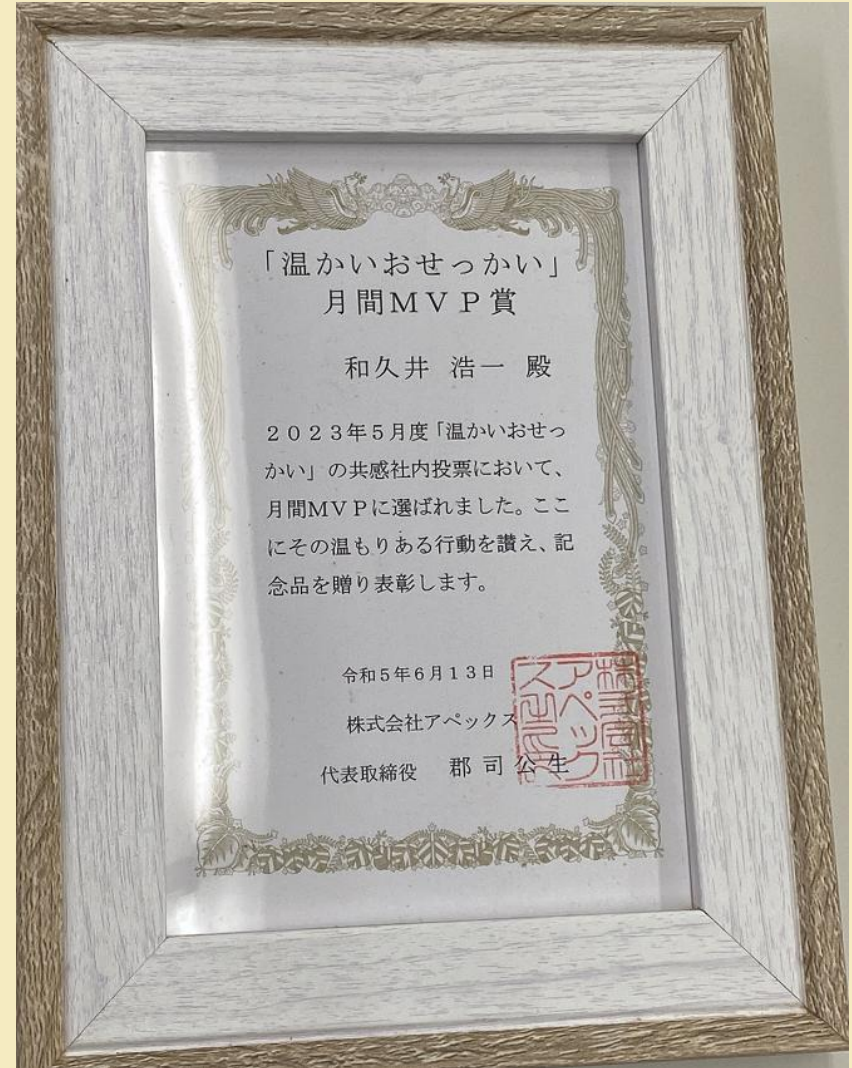 「温かいおせっかい」
月間ＭＶＰ賞
和久井 浩一 殿
２０２３年５月度「温かいおせっ
かい」の共感社内投票において、
月間ＭＶＰに選ばれました。ここ
にその温もりある行動を讃え、記
念品を贈り表彰します。
令和５年６月１３日
株式会社アペックス
代表取締役 郡司公生
株式会社
アペック
ス之印